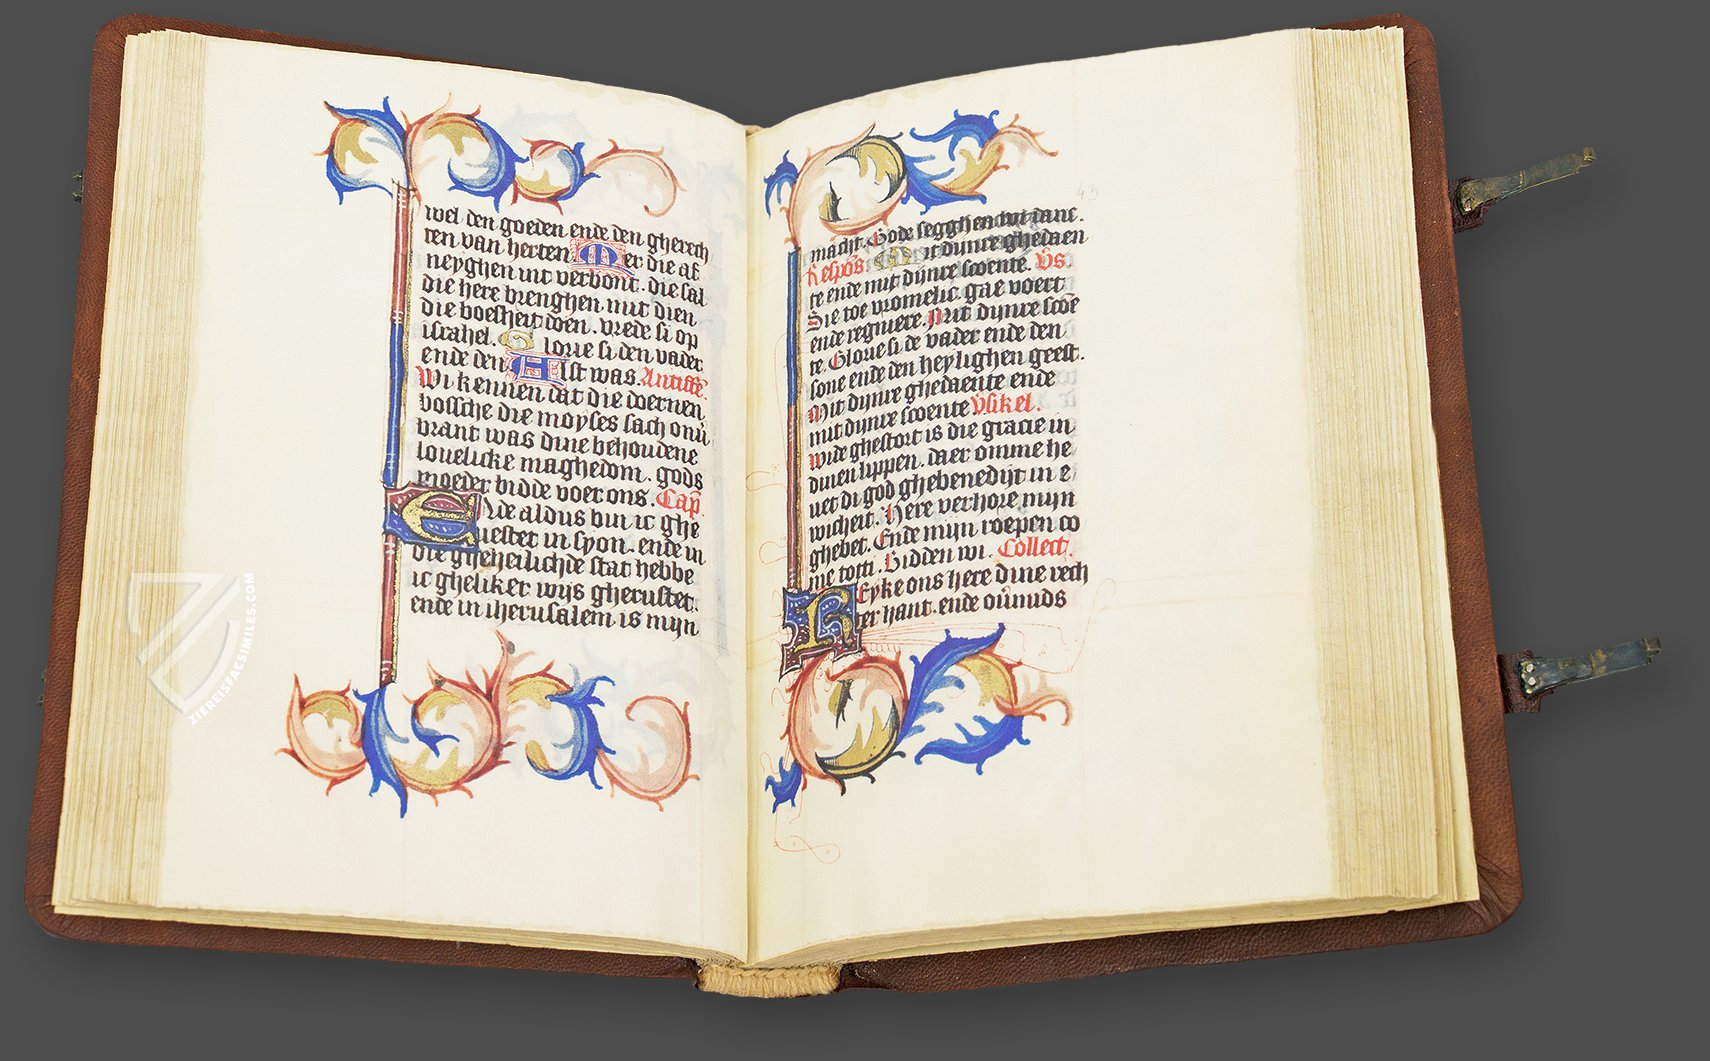 wel den goeden ende den gherech
ten van herten. Mer die af
neyghen int verbont. die sal
die here brenghen. mit dien
die boesheit doen. vrede si op
israhel. Glorie si den vader
ende den Alst was. Antiffē.
Wi kennen dat die doernen
bossche die moyses sach onū
brant was dine behoudene
louelicke maghedom. gods
moeder bidde voer ons. Cap̄.
Ende aldus bin ic ghe
uestet in syon. ende in
die gheheilichde stat hebbe
ic gheliker wijs gherustet.
ende in iherusalem is mijn
43
macht. Gode segghen wi danc.
Respōs. Mit dijnre ghedaen
te ende mit dijnre scoente. Vs.
Sie toe vromelic. gae voert
ende regniere. Mit dijnre scoē
te. Glorie si de vader ende den
sone ende den heylighen geest.
Mit dijnre ghedaente ende
mit dijnre scoente Vsikel.
Wtde ghestort is die gracie in
dinen lippen. daer omme he
uet di god ghebenedijt in e
wicheit. Here verhore mijn
ghebet. Ende mijn roepen co
me toti. Bidden wi. Collect.
Reyke ons here dine rech
ter hant. ende oūmids
ZIEREISFACSIMILES.COM